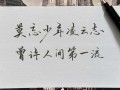 莫忘少年凌云志
曾许人间第一流